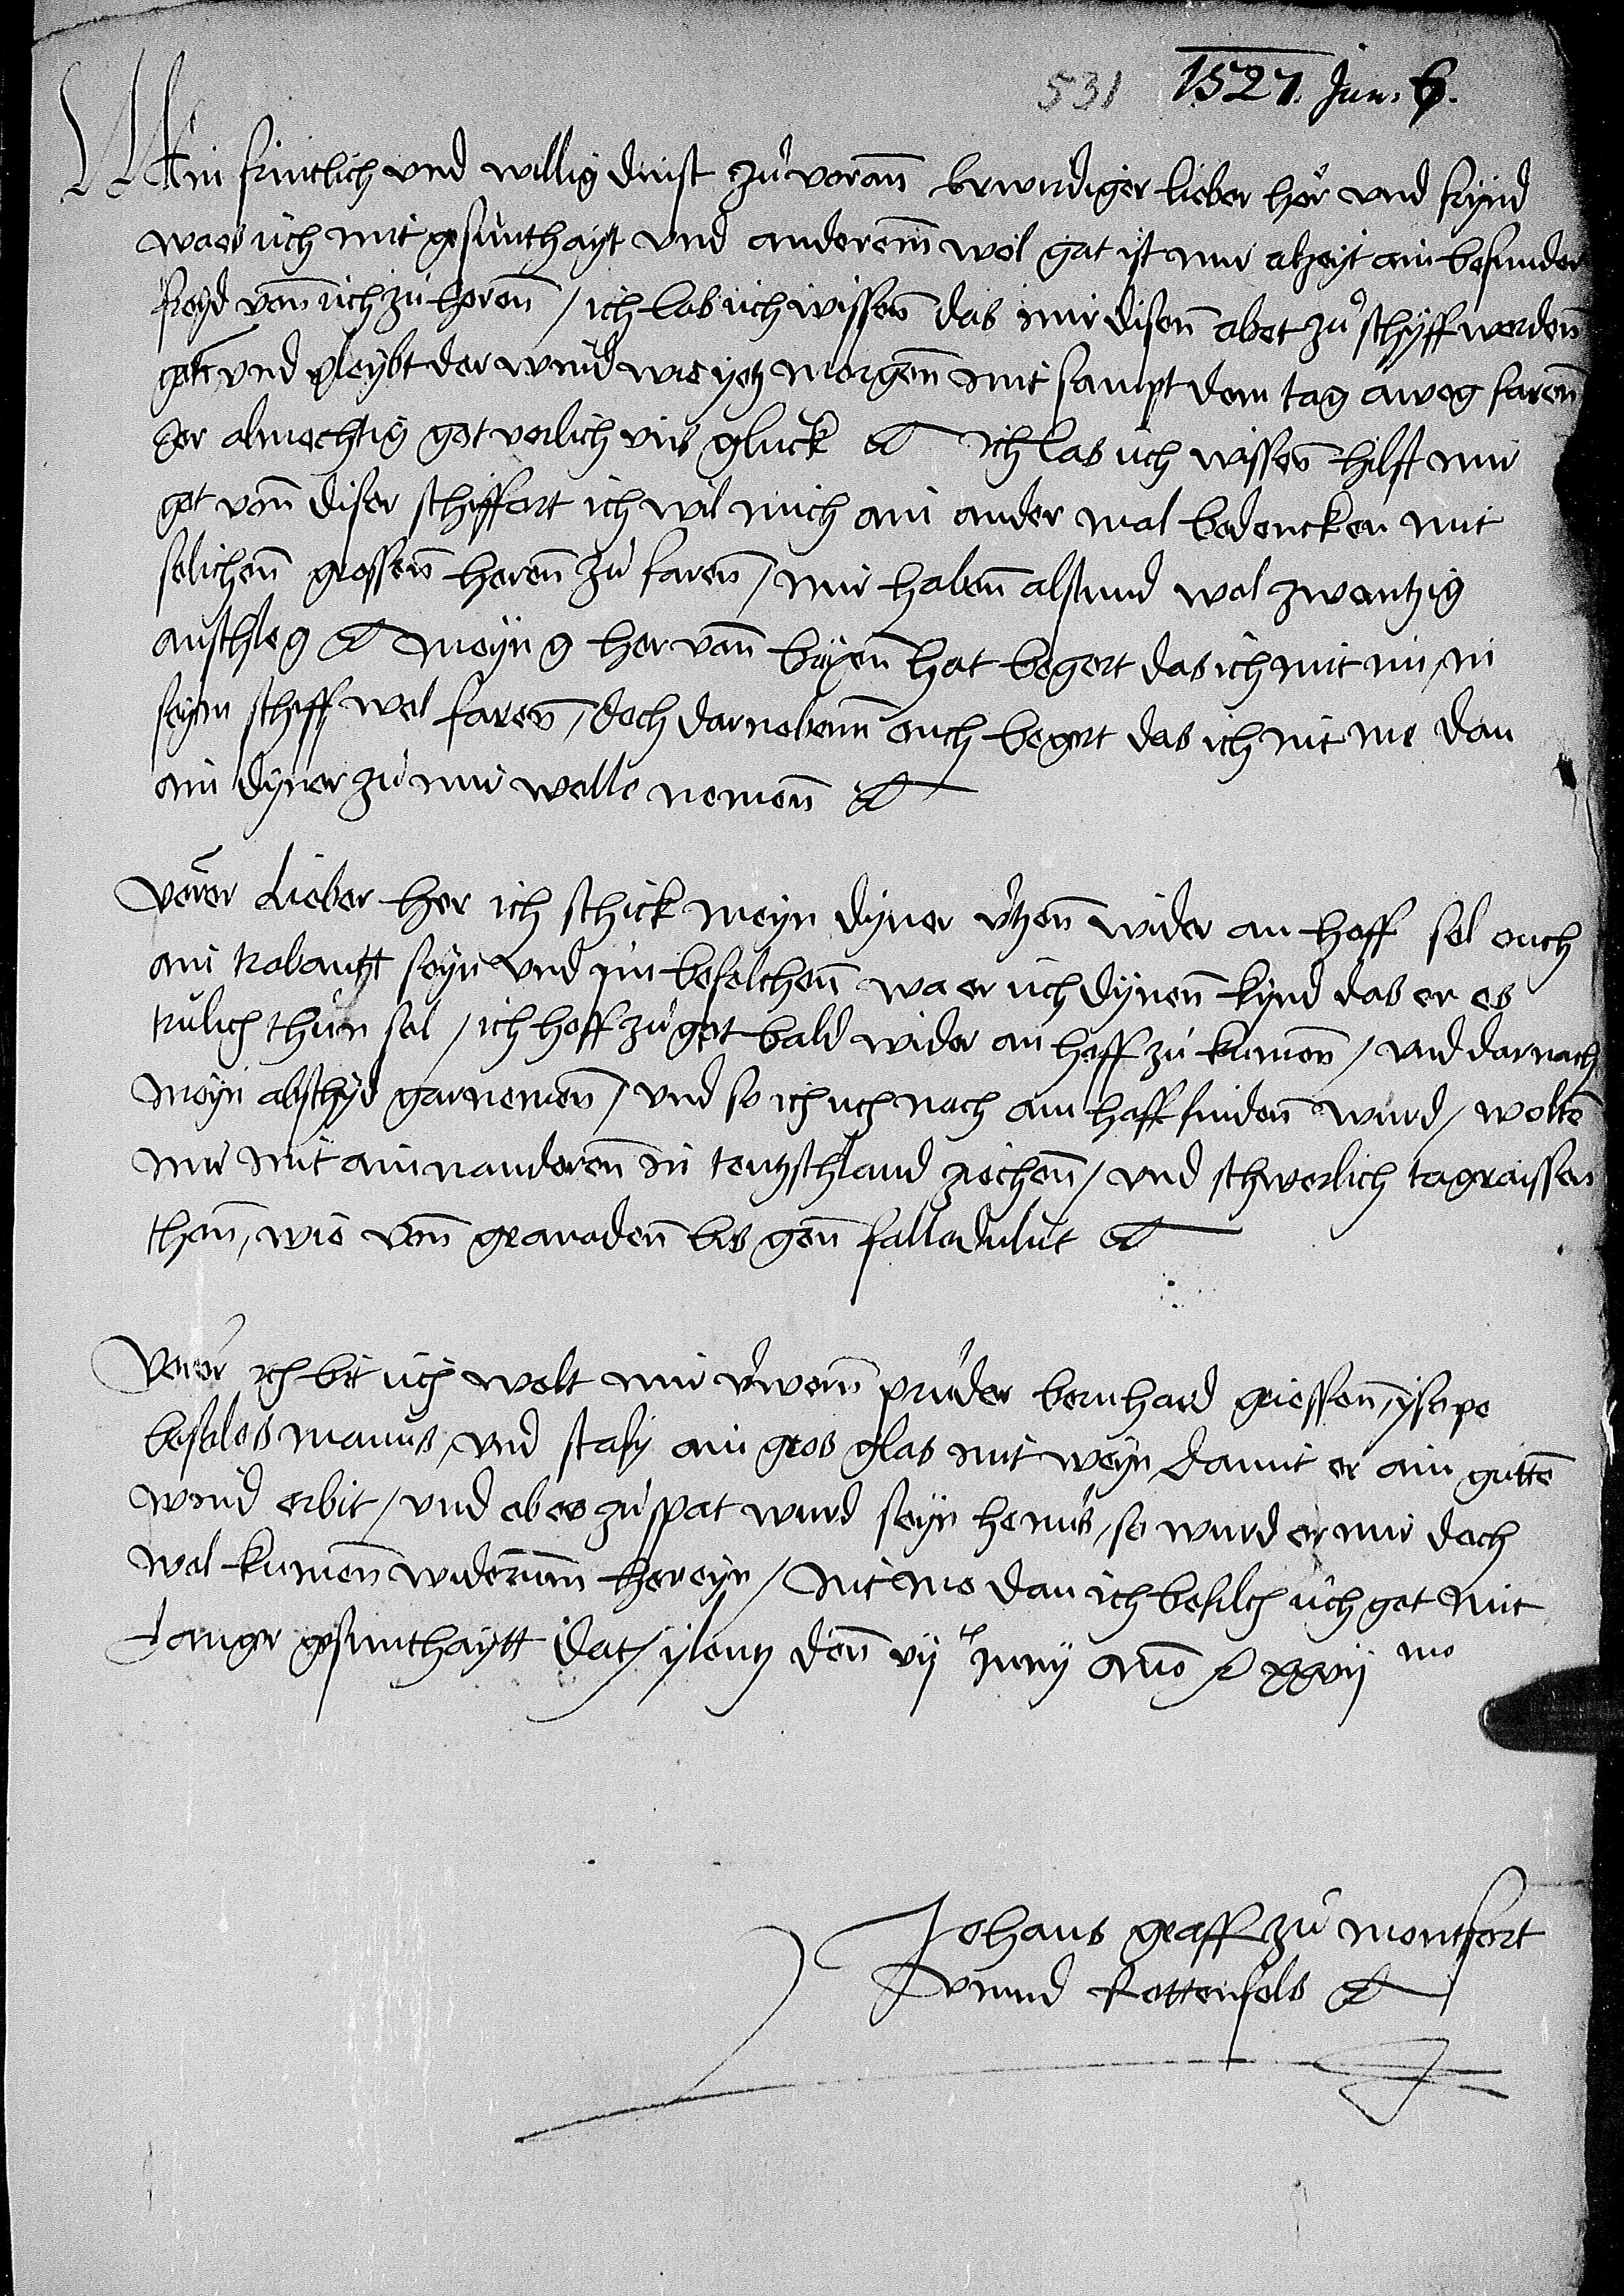 531 1527. Jun. 6.
Min fruntlich vnd willig dinst zu voran erwirdiger lieber her vnd frynd
wa es üch mit gesunthayt vnd anderem wol gat ist mir alzeyt ain besunder
freyd von üch zu heren / ich las üch wissen das mir disen abet zu schyff werden
gen vnd pleybt der wind wie yetz morgen mit sampt dem tag aweg faren
der almechtig got verlich vns gluck etc ich las üch wissen hilft mir
got von diser schiffart ich wil mich ain ander mal bedencken mit
solichen grossen heren zu faren / mir haben alstund wol zwantzig
anschleg etc meyn g her von hat begert das ich mit im in
seym schiff wel faren / doch darneben ouch begert das ich nit me dan
ain dyner zu mir welle nemen etc
verer Lieber her ich schick meyn dyner vtzen wider an hoff sol ouch
ain trabantt seyn vnd im befolchen wa er üch dynen kynd das er es
trülich thun sol / ich hoff zu got bald wider an hoff zu kumen / vnd darnach
meyn abschyd gar nemen / vnd so ich üch noch am hoff finden wurd / wolten
mir mit ainnanderen in teutzschland ziechen / vnd schwerlich tagraissen
than, wie von granaden bis gen falledulut etc
verer ich bit üch welt mir üweren pruder bernhard griessen, ysepe
manus, vnd stafy ain gros glas mit weyn damit er ain gutten
wind erbit / vnd ob es zu spat wurd seyn henus, so wurd er mir doch
wol kumen widerumm hereyn / nit me dan ich befilch üch got mit
langer gesunthaytt dat / ylentz den vij juny ano xxvij mo
Johans graff zu montfort
vnnd Rottenfels etc